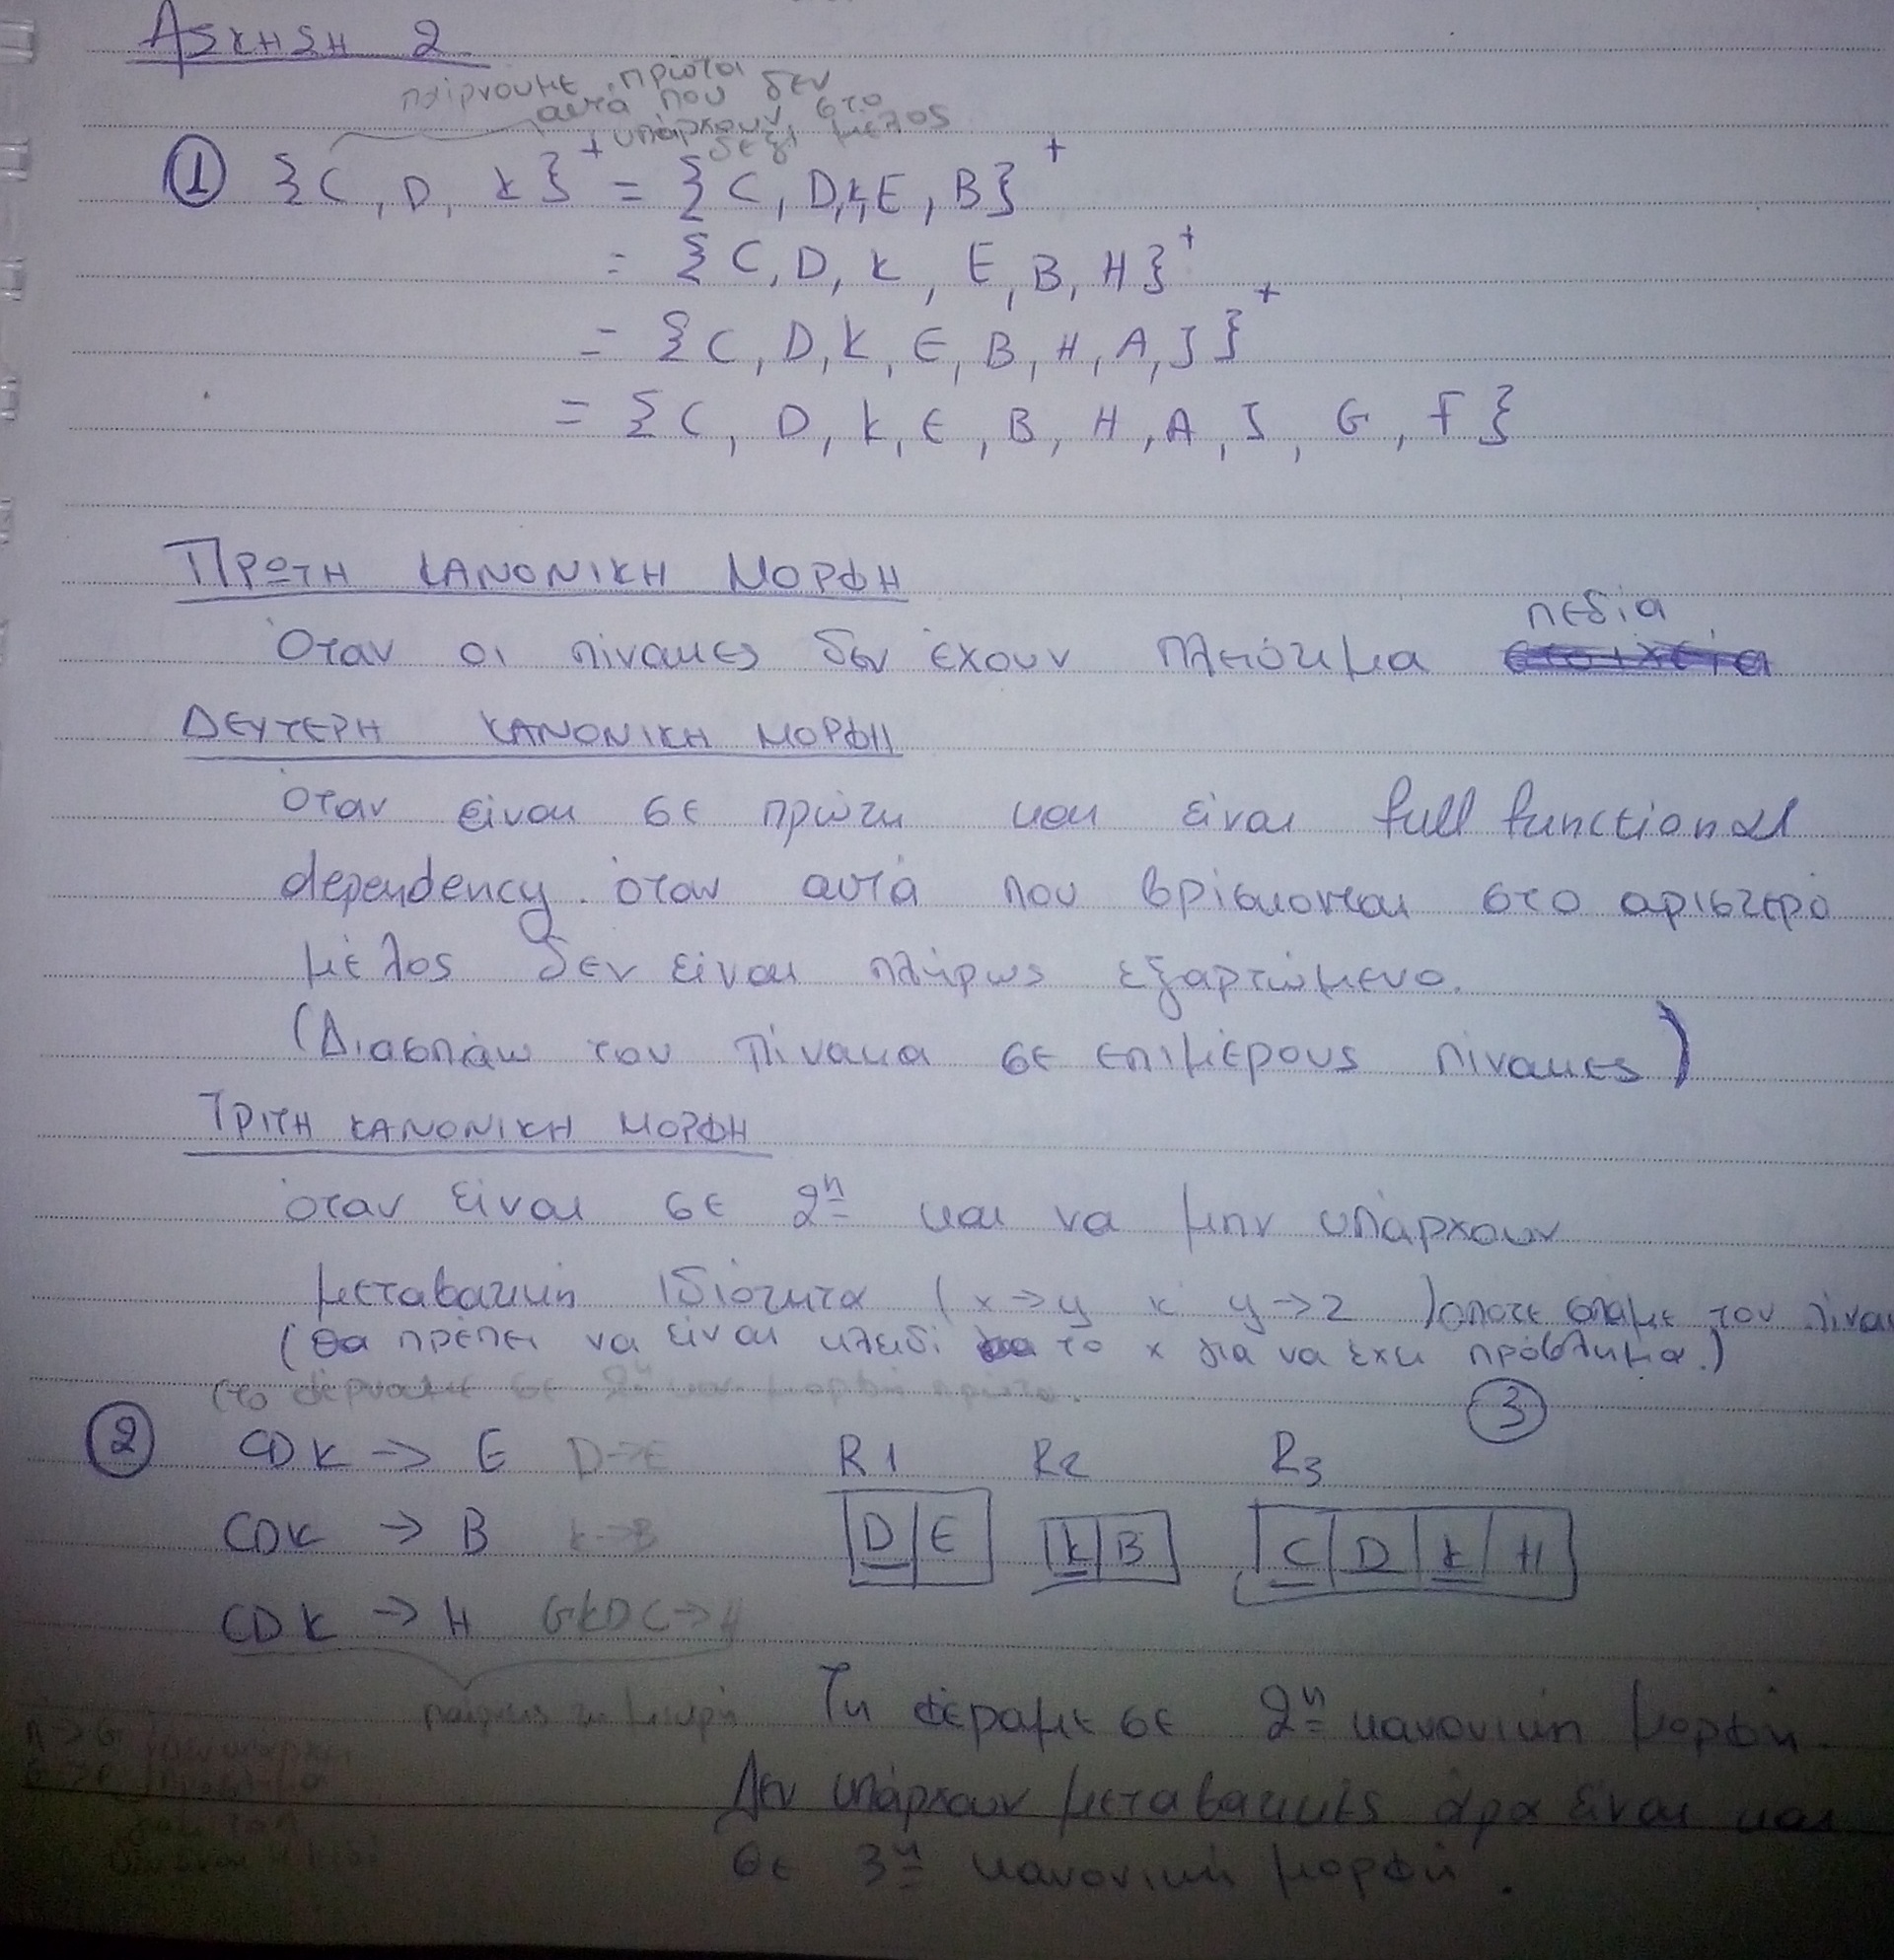 ΑΣΚΗΣΗ 2
παίρνουμε πρώτα
αυτά που δεν
υπάρχουν στο
δεξί μέλος
① {C, D, K}⁺ = {C, D, K, E, B}⁺
= {C, D, K, E, B, H}⁺
= {C, D, K, E, B, H, A, J}⁺
= {C, D, K, E, B, H, A, J, G, F}
ΠΡΩΤΗ ΚΑΝΟΝΙΚΗ ΜΟΡΦΗ
πεδία
Όταν οι πίνακες δεν έχουν πλειότιμα στοιχεία
ΔΕΥΤΕΡΗ ΚΑΝΟΝΙΚΗ ΜΟΡΦΗ
όταν είναι σε πρώτη και είναι full functional
dependency. όταν αυτά που βρίσκονται στο αριστερό
μέλος δεν είναι πλήρως εξαρτώμενα.
(Διασπάω τον πίνακα σε επιμέρους πίνακες)
ΤΡΙΤΗ ΚΑΝΟΝΙΚΗ ΜΟΡΦΗ
όταν είναι σε 2η και να μην υπάρχουν
μεταβατική ιδιότητα (x→y κ y→z) οποτε σπάμε τον πίνακ
(θα πρέπει να είναι κλειδί το x για να έχει πρόβλημα.)
(το φέρναμε σε 2η κανμορφή πρώτα.
② CDK → E D→E R1 R2 R3 ③
CDK → B K→B D E K B C D K H
CDK → H GKDC→H
παίρνεις τη μικρή Τη φέραμε σε 2η κανονική μορφή.
Δεν υπάρχουν μεταβατικές άρα είναι και
σε 3η κανονική μορφή.